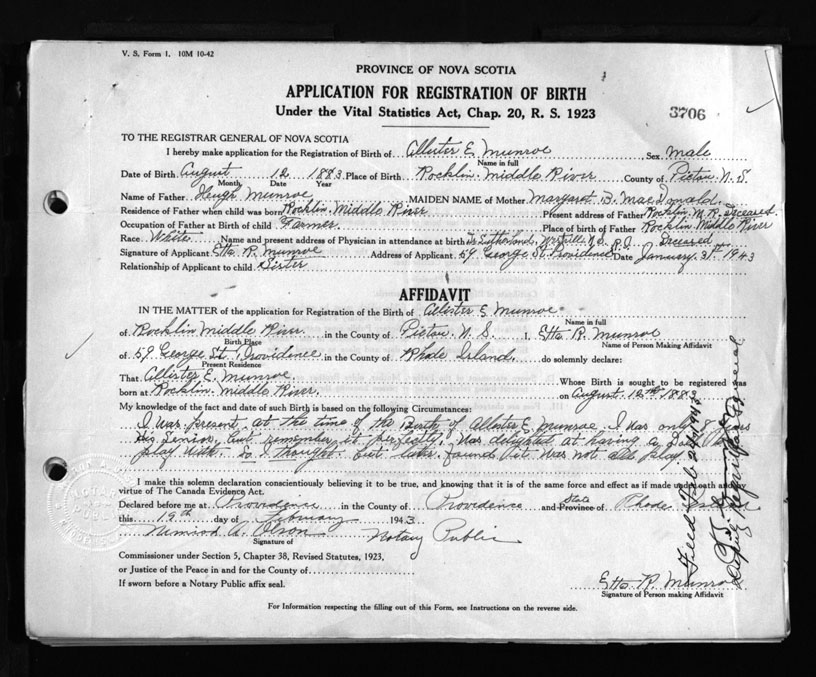 V. S. Form 1. 10M 10-42
PROVINCE OF NOVA SCOTIA
APPLICATION FOR REGISTRATION OF BIRTH
Under the Vital Statistics Act, Chap. 20, R. S. 1923
3706
TO THE REGISTRAR GENERAL OF NOVA SCOTIA
I hereby make application for the Registration of Birth of Allister E. Munroe Sex Male
Name in full
Date of Birth August 12 1883 Place of Birth Rocklin Middle River County of Pictou N. S.
Month Date Year
Name of Father Hugh Munroe MAIDEN NAME of Mother Margaret B. MacDonald
Residence of Father when child was born Rocklin Middle River Present address of Father Rocklin M. R. Deceased
Occupation of Father at Birth of child Farmer. Place of birth of Father Rocklin Middle River
Race White Name and present address of Physician in attendance at birth Dr Sutherland, Westville N.S. Deceased
Signature of Applicant Etta R. Munroe Address of Applicant 59 George St. Providence R.I. Date January 31st 1943
Relationship of Applicant to child Sister
AFFIDAVIT
IN THE MATTER of the application for Registration of the Birth of Allister E Munroe
Name in full
of Rocklin Middle River in the County of Pictou N. S. I, Etta R. Munroe
Birth Place Name of Person Making Affidavit
of 59 George St. Providence in the County of Rhode Island. do solemnly declare:
Present Residence
That Allister E. Munroe Whose Birth is sought to be registered was
born at Rocklin Middle River. on August 12th 1883
My knowledge of the fact and date of such Birth is based on the following Circumstances:
I was present at the time of the Birth of Allister E Munroe. I was only 8 years
his senior, but remember it perfectly. Was delighted at having a to
play with. So I thought. But later found out was not all play.
I make this solemn declaration conscientiously believing it to be true, and knowing that it is of the same force and effect as if made under oath and by
virtue of The Canada Evidence Act.
Declared before me at Providence in the County of Providence and State Province of Rhode Island
this 19th day of February 1943
Nimrod A. Olson Notary Public
Signature of
Commissioner under Section 5, Chapter 38, Revised Statutes, 1923,
or Justice of the Peace in and for the County of
If sworn before a Notary Public affix seal.
Etta R. Munroe
Signature of Person making Affidavit
For Information respecting the filling out of this Form, see Instructions on the reverse side.
Filed Feb 24 1943
Deputy Registrar General